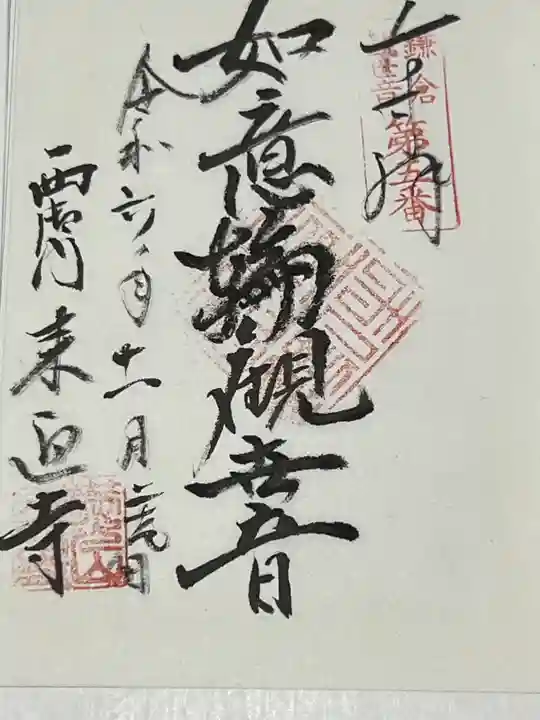 奉拝
鎌倉
観世音
第五番
如意輪観世音
令和六年十一月
西御門来迎寺